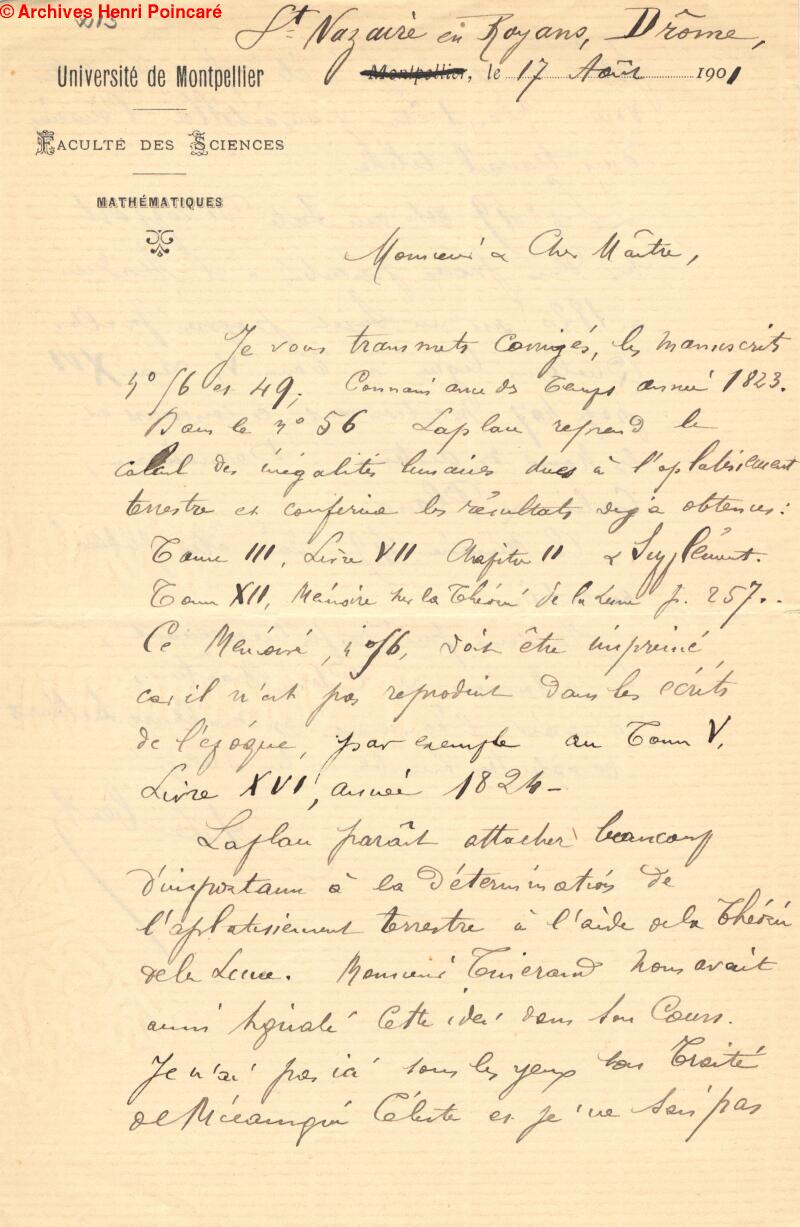 © Archives Henri Poincaré
St Nazaire en Royans, Drôme,
Université de Montpellier
Montpellier, le 17 Août 1901
FACULTÉ DES SCIENCES
MATHÉMATIQUES
Monsieur & Cher Maître,
Je vous transmets corrigés, les manuscrits
n° 56 et 49, Connaissance des Temps année 1823.
Dans le n° 56 Laplace reprend le
calcul des inégalités lunaires dues à l'aplatissement
terrestre et confirme les résultats déjà obtenus:
Tome III, Livre VII Chapitre II & Supplément.
Tome XII, Mémoire sur la Théorie de la Lune p. 257.
Ce Mémoire, n° 56, doit être imprimé,
car il n'est pas reproduit dans les écrits
de l'époque, par exemple au Tome V,
Livre XVI, année 1824-
Laplace paraît attacher beaucoup
d'importance à la détermination de
l'aplatissement terrestre à l'aide de la Théorie
de la Lune. Monsieur Tisserand nous avait
aussi signalé cette idée dans son Cours.
Je n'ai pas ici sous les yeux son Traité
de Mécanique Céleste et je ne sais pas